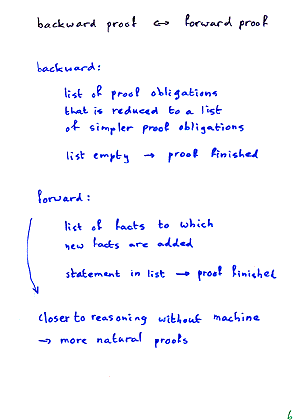 backward proof ↔ forward proof
backward:
list of proof obligations
that is reduced to a list
of simpler proof obligations
list empty → proof finished
forward:
list of facts to which
new facts are added
statement in list → proof finished
closer to reasoning without machine
→ more natural proofs
6